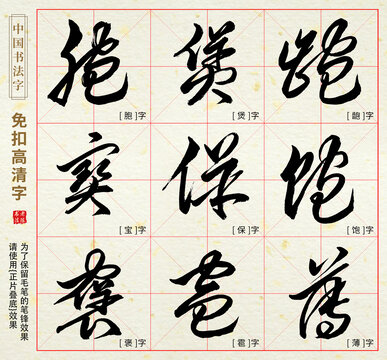 中国书法字
免扣高清字
为了保留毛笔的笔锋效果
请使用[正片叠底]效果
胞 煲 龅
[ 胞 ]字 [ 煲 ]字 [ 龅 ]字
宝 保 饱
[ 宝 ]字 [ 保 ]字 [ 饱 ]字
褒 雹 薄
[ 褒 ]字 [ 雹 ]字 [ 薄 ]字